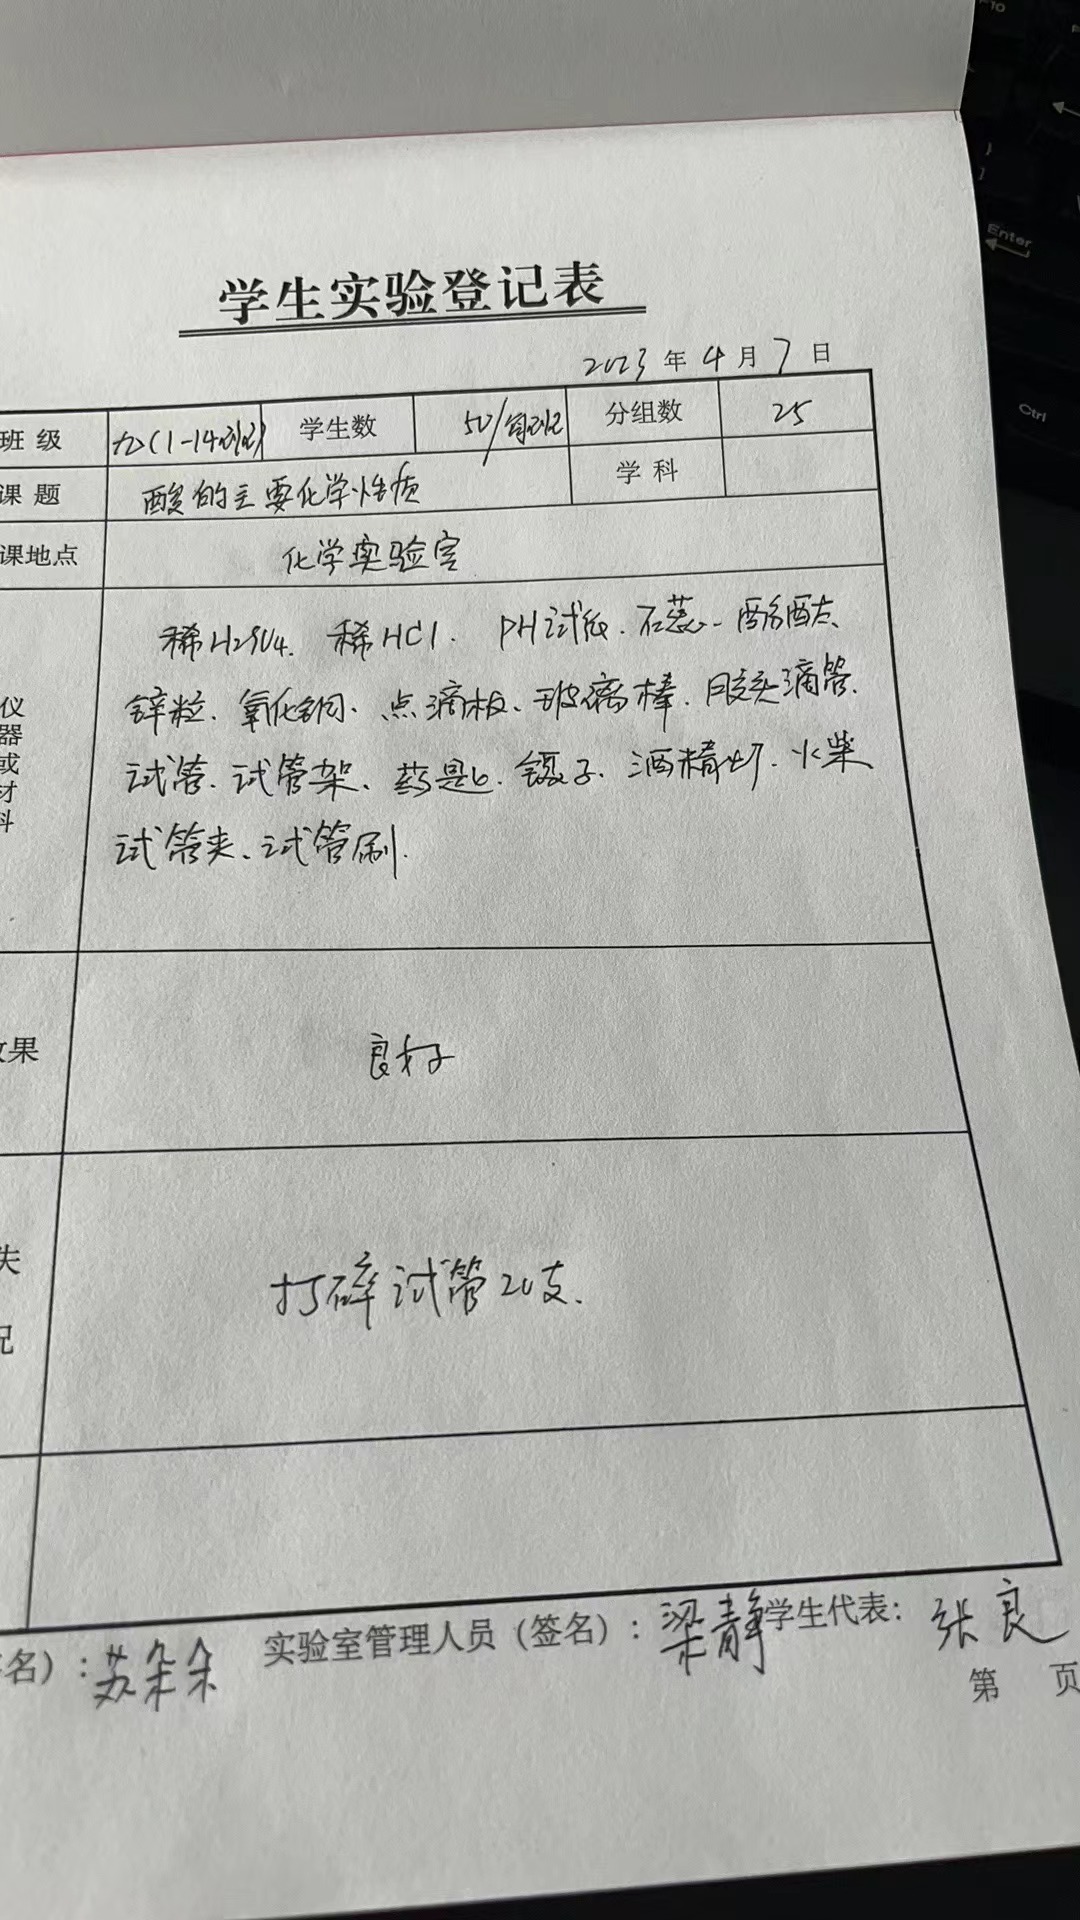 学生实验登记表
2023年4月7日
班级 九(1-14班) 学生数 50/每班 分组数 25
课题 酸的主要化学性质 学科
课地点 化学实验室
仪器或材料
稀H2SO4. 稀HCl. PH试纸. 石蕊. 酚酞.
锌粒. 氧化铜. 点滴板、玻璃棒. 胶头滴管.
试管. 试管架、药匙. 镊子. 酒精灯. 火柴
试管夹、试管刷.
效果 良好
失
况
打碎试管20支.
签名):苏朵朵 实验室管理人员(签名):梁静 学生代表:张良
第 页
Enter
Ctrl